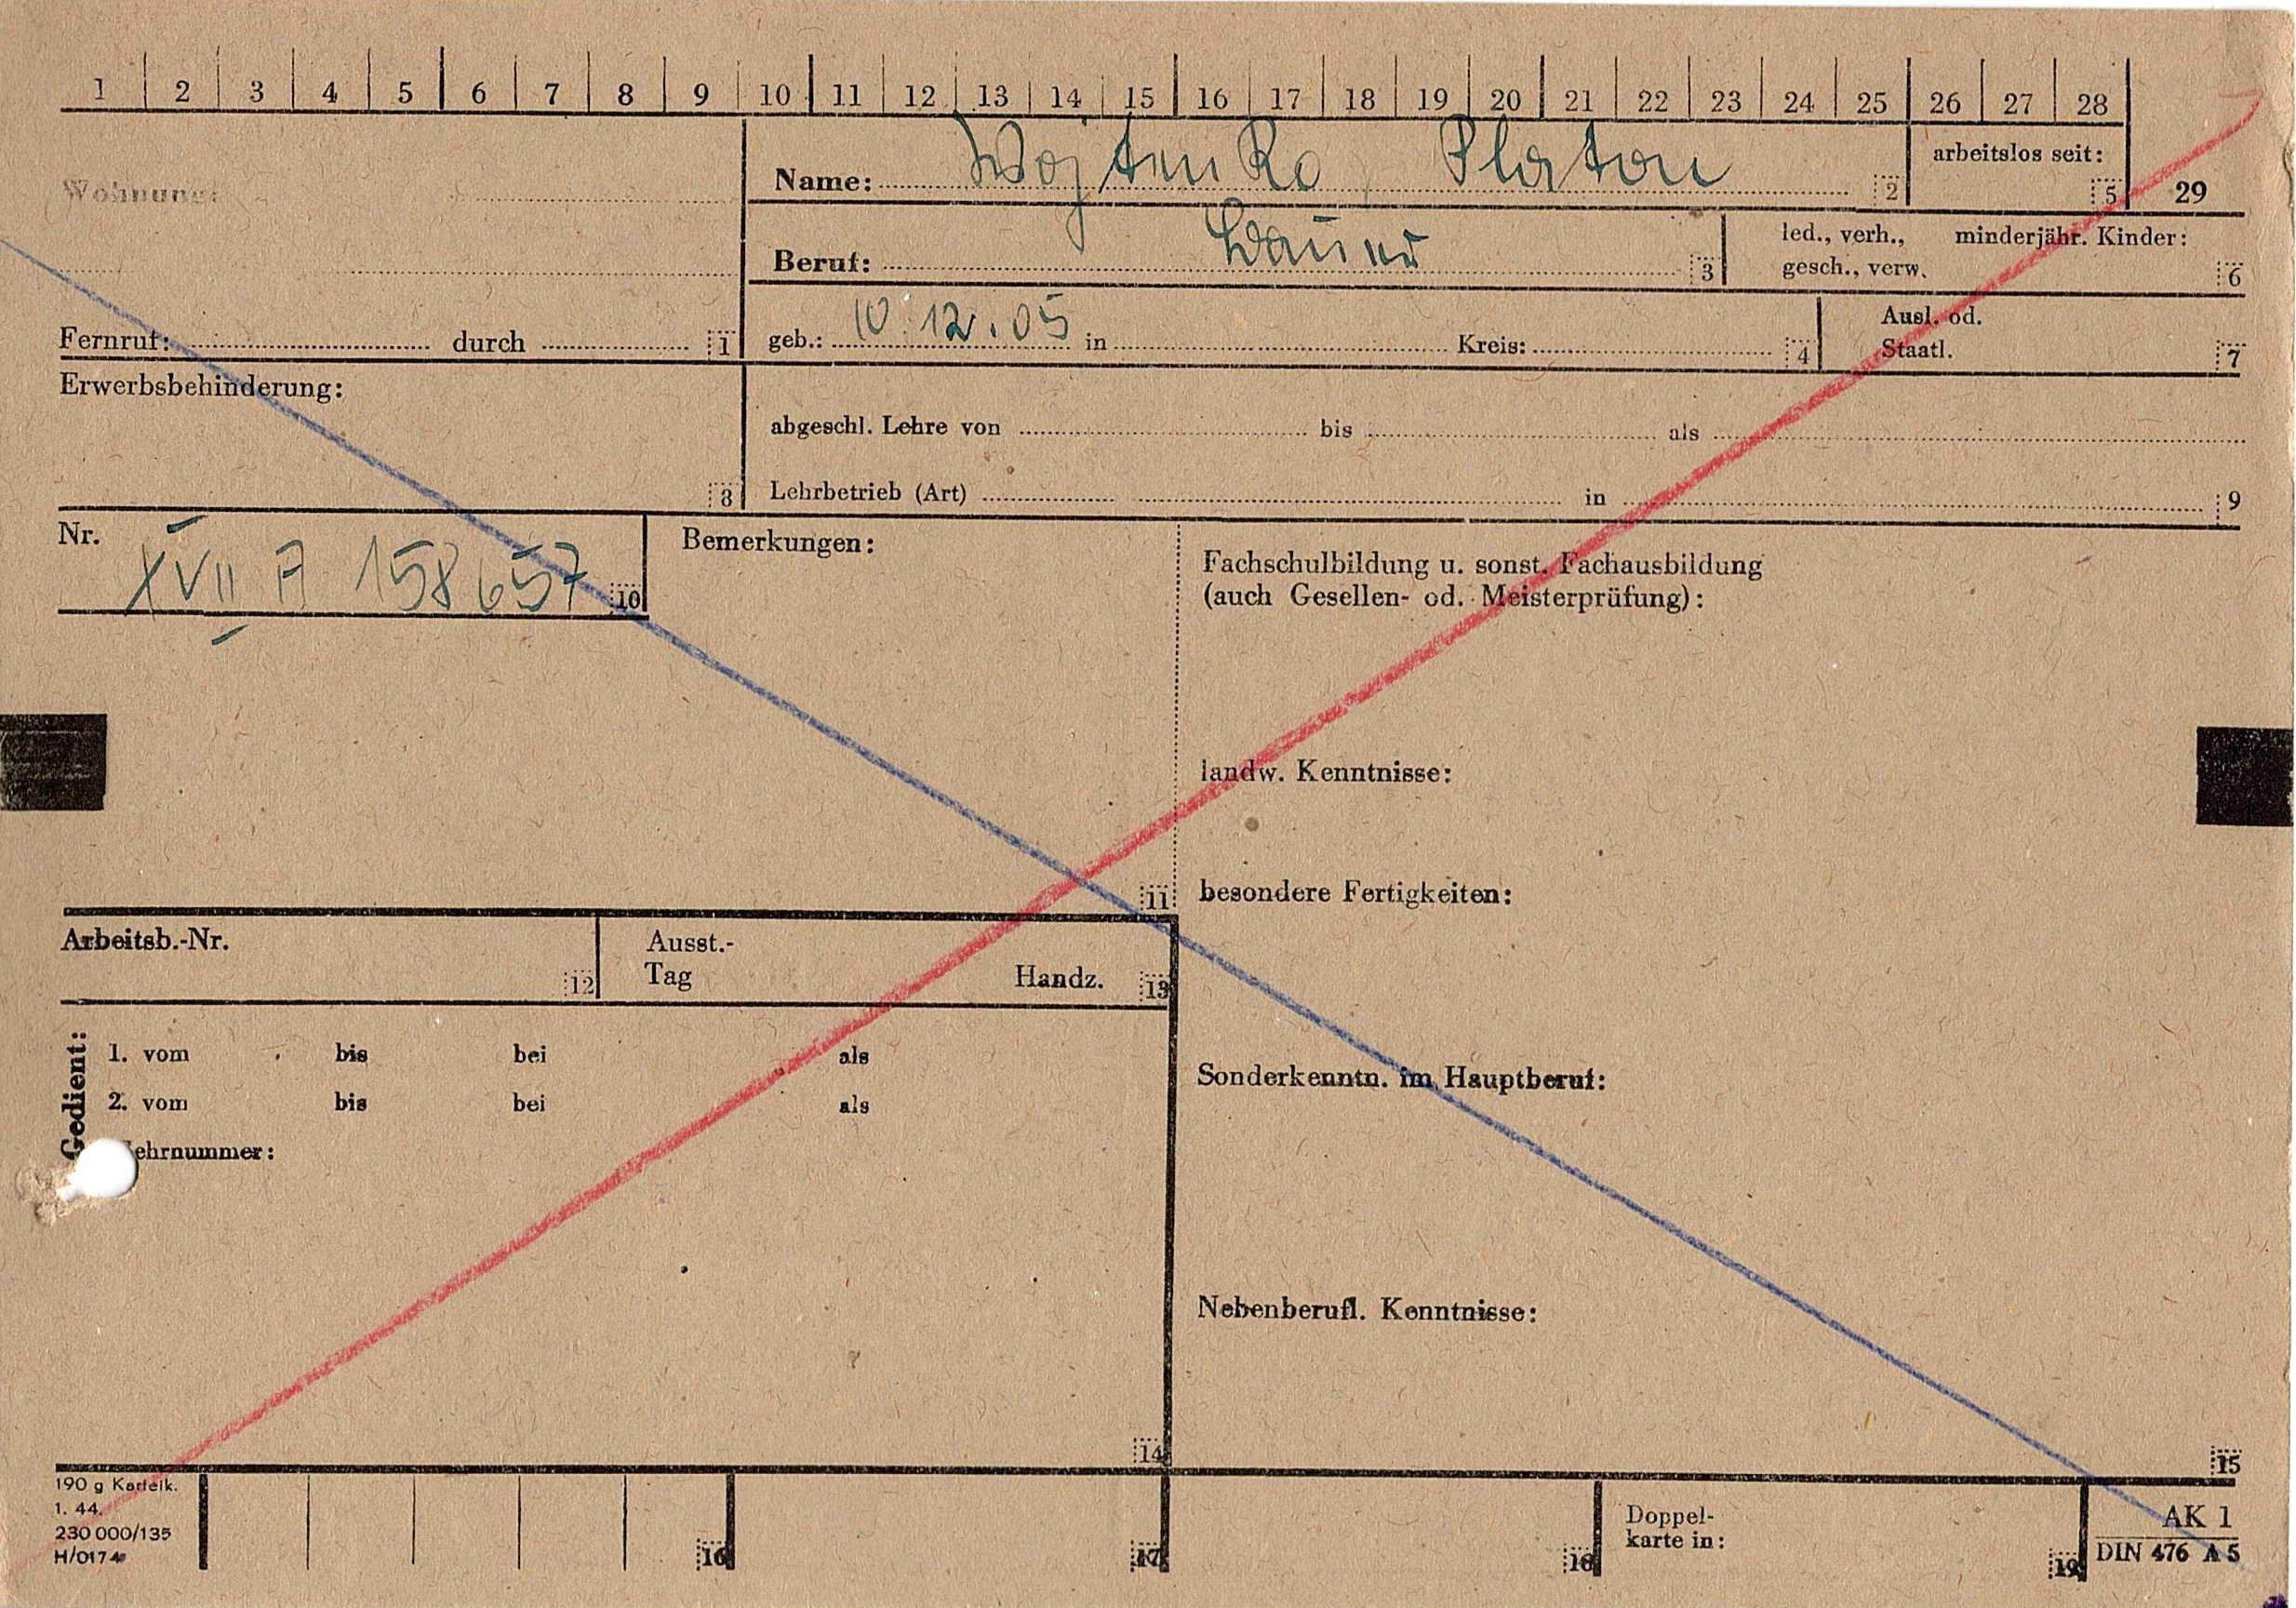 1 2 3 4 5 6 7 8 9 10 11 12 13 14 15 16 17 18 19 20 21 22 23 24 25 26 27 28
Wohnung:
Name: Wojtenko, Platon 2
arbeitslos seit: 5
29
Beruf: 3
led., verh., minderjähr. Kinder:
gesch., verw. 6
Fernruf: durch 1
geb.: 10.12.05 in Kreis: 4
Ausl. od.
Staatl. 7
Erwerbsbehinderung:
8
abgeschl. Lehre von bis als
Lehrbetrieb (Art) in 9
Nr. XVII A 158657 10
Bemerkungen:
11
Fachschulbildung u. sonst. Fachausbildung
(auch Gesellen- od. Meisterprüfung):
landw. Kenntnisse:
besondere Fertigkeiten:
Arbeitsb.-Nr. 12
Ausst.-
Tag Handz. 13
Gedient:
1. vom bis bei als
2. vom bis bei als
ehrnummer:
14
Sonderkenntn. im Hauptberuf:
Nebenberufl. Kenntnisse:
15
190 g Karteik.
1. 44.
230 000/135
H/0174
16
17
18
Doppel-
karte in: 19
AK 1
DIN 476 A 5